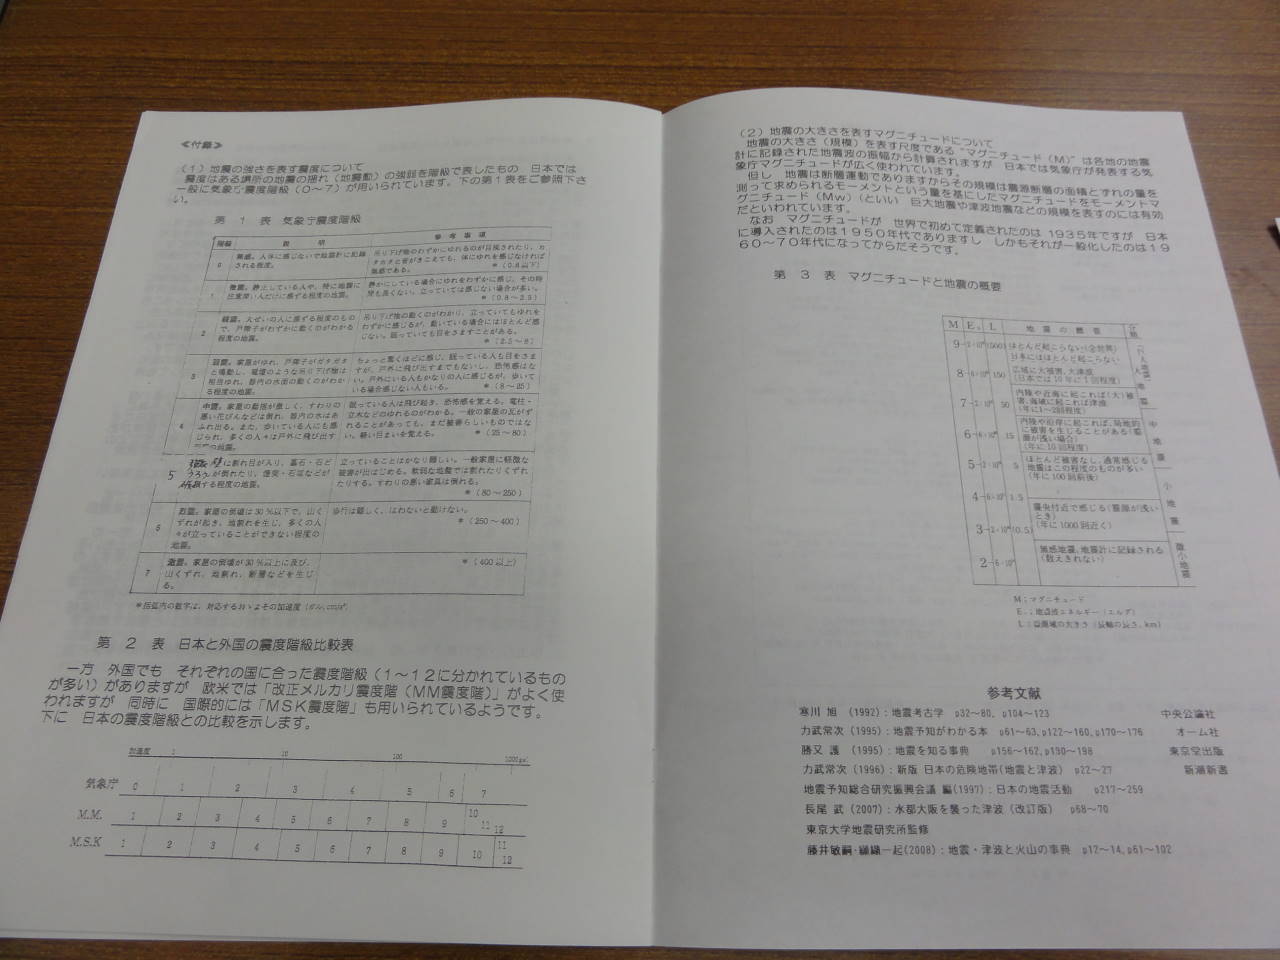 ≪付録≫
(1)地震の強さを表す震度について
震度はある場所の地震の揺れ(地震動)の強弱を階級で表したもの 日本では
一般に気象庁震度階級(0~7)が用いられています。下の第1表をご参照下さ
い。
第 1 表 気象庁震度階級
階級 説 明 参 考 事 項
0 無感。人体に感じないで地震計に記録 吊り下げ物のわずかにゆれるのが目視されたり、カ
される程度。 タカタと音がきこえても、体にゆれを感じなければ
無感である。 *(0.8以下)
1 微震。静止している人や、特に地震に 静かにしている場合にゆれをわずかに感じ、その時
注意深い人だけに感ずる程度の地震。 間も長くない。立っていては感じない場合が多い。
*(0.8~2.5)
2 軽震。大ぜいの人に感ずる程度のもの 吊り下げ物の動くのがわかり、立っていてもゆれを
で、戸障子がわずかに動くのがわかる わずかに感じるが、動いている場合にはほとんど感
程度の地震。 じない。眠っていても目をさますことがある。
*(2.5~8)
3 弱震。家屋がゆれ、戸障子がガタガタ ちょっと驚くほどに感じ、眠っている人も目をさま
と鳴動し、電燈のような吊り下げ物は すが、戸外に飛び出すまでもないし、恐怖感はな
相当ゆれ、器内の水面の動くのがわか い。戸外にいる人もかなりの人に感じるが、歩いて
る程度の地震。 いる場合感じない人もいる。 *(8~25)
4 中震。家屋の動揺が激しく、すわりの 眠っている人は飛び起き、恐怖感を覚える。電柱・
悪い花びんなどは倒れ、器内の水はあ 立木などのゆれるのがわかる。一般の家屋の瓦がず
ふれ出る。また、歩いている人にも感 れることがあっても、まだ被害らしいものではな
じられ、多くの人々は戸外に飛び出す い。軽い目まいを覚える。 *(25~80)
程度の地震。
5 強震。壁に割れ目が入り、墓石・石ど 立っていることはかなり難しい。一般家屋に軽微な
うろうが倒れたり、煙突・石垣などが 被害が出はじめる。軟弱な地盤では割れたりくずれ
破損する程度の地震。 たりする。すわりの悪い家具は倒れる。
*(80~250)
6 烈震。家屋の倒壊は30%以下で、山く 歩行は難しく、はわないと動けない。
ずれが起き、地割れを生じ、多くの人 *(250~400)
々が立っていることができない程度の
地震。
7 激震。家屋の倒壊が30%以上に及び、 *(400以上)
山くずれ、地割れ、断層などを生じ
る。
*括弧内の数字は、対応するおゝよその加速度(ガル,cm/s²
第 2 表 日本と外国の震度階級比較表
一方 外国でも それぞれの国に合った震度階級(1~12に分かれているもの
が多い)がありますが 欧米では「改正メルカリ震度階(MM震度階)」がよく使
われますが 同時に 国際的には「MSK震度階」も用いられているようです。
下に 日本の震度階級との比較を示します。
加速度 1 10 100 1000gal
気象庁 0 1 2 3 4 5 6 7
M.M. 1 2 3 4 5 6 7 8 9 10 11 12
M.S.K 1 2 3 4 5 6 7 8 9 10 11 12
(2)地震の大きさを表すマグニチュードについて
地震の大きさ(規模)を表す尺度である"マグニチュード(M)"は各地の地震
計に記録された地震波の振幅から計算されますが 日本では気象庁が発表する気
象庁マグニチュードが広く使われています。
但し 地震は断層運動でありますからその規模は震源断層の面積とずれの量を
測って求められるモーメントという量を基にしたマグニチュードをモーメントマ
グニチュード(Mw)(といい 巨大地震や津波地震などの規模を表すのには有効
だといわれています。
なお マグニチュードが 世界で初めて定義されたのは 1935年ですが 日本
に導入されたのは1950年代でありますし しかもそれが一般化したのは19
60~70年代になってからだそうです。
第 3 表 マグニチュードと地震の概要
M E. L 地 震 の 概 要 分類
9 (500) ほとんど起こらない(全世界)
日本にはほとんど起こらない
8 150 広域に大被害、大津波
(日本では10年に1回程度)
7 50 内陸や近海に起これば(大)被
害、海域に起これば津波
(年に1~2回程度)
6 15 内陸や沿岸に起これば、局地的
に被害を生じることがある(震
源が浅い場合)
(年に10回程度)
5 5 ほとんど被害なし、通常感じる
地震はこの程度のものが多い
(年に100回前後)
4 1.5 震央付近で感じる(震源が浅い
とき)
3 (0.5) (年に1000回近く)
2 無感地震、地震計に記録される
(数えきれない)
大地震 中地震 小地震 微小地震
M:マグニチュード
E.:地震波エネルギー(エルグ)
L:震源域の大きさ(長軸の長さ、km)
参考文献
寒川 旭 (1992):地震考古学 p32~80、p104~123 中央公論社
力武常次(1995):地震予知がわかる本 p61~63,p122~160,p170~176 オーム社
勝又 護 (1995):地震を知る事典 p156~162,p190~196 東京堂出版
力武常次(1996):新版 日本の危険地帯(地震と津波) p22~27 新潮新書
地震予知総合研究振興会議 編(1997):日本の地震活動 p217~259
長尾 武(2007):水都大阪を襲った津波(改訂版) p68~70
東京大学地震研究所監修
藤井敏嗣・纐纈一起(2008):地震・津波と火山の事典 p12~14,p61~102